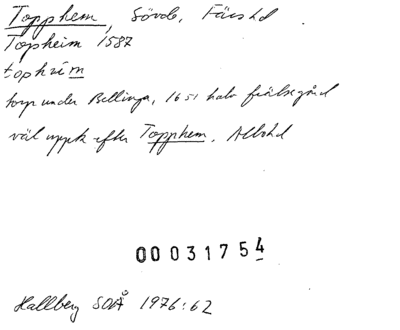 Topphem, Sövde, Färs hd.
Topheim 1587
tophém
torp under Bellinga, 1651 halv frälsegård
väl uppk efter Topphem, Albo hd
00031754
Hallberg SOÅ 1976:62